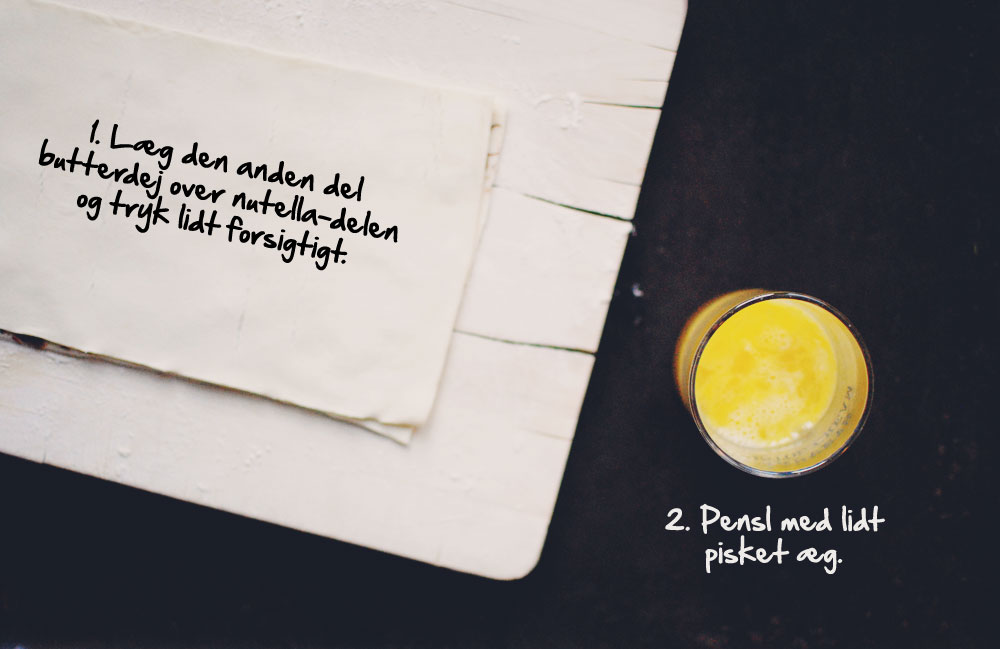 1. Læg den anden del
butterdej over nutella-delen
og tryk lidt forsigtigt.
2. Pensl med lidt
pisket æg.